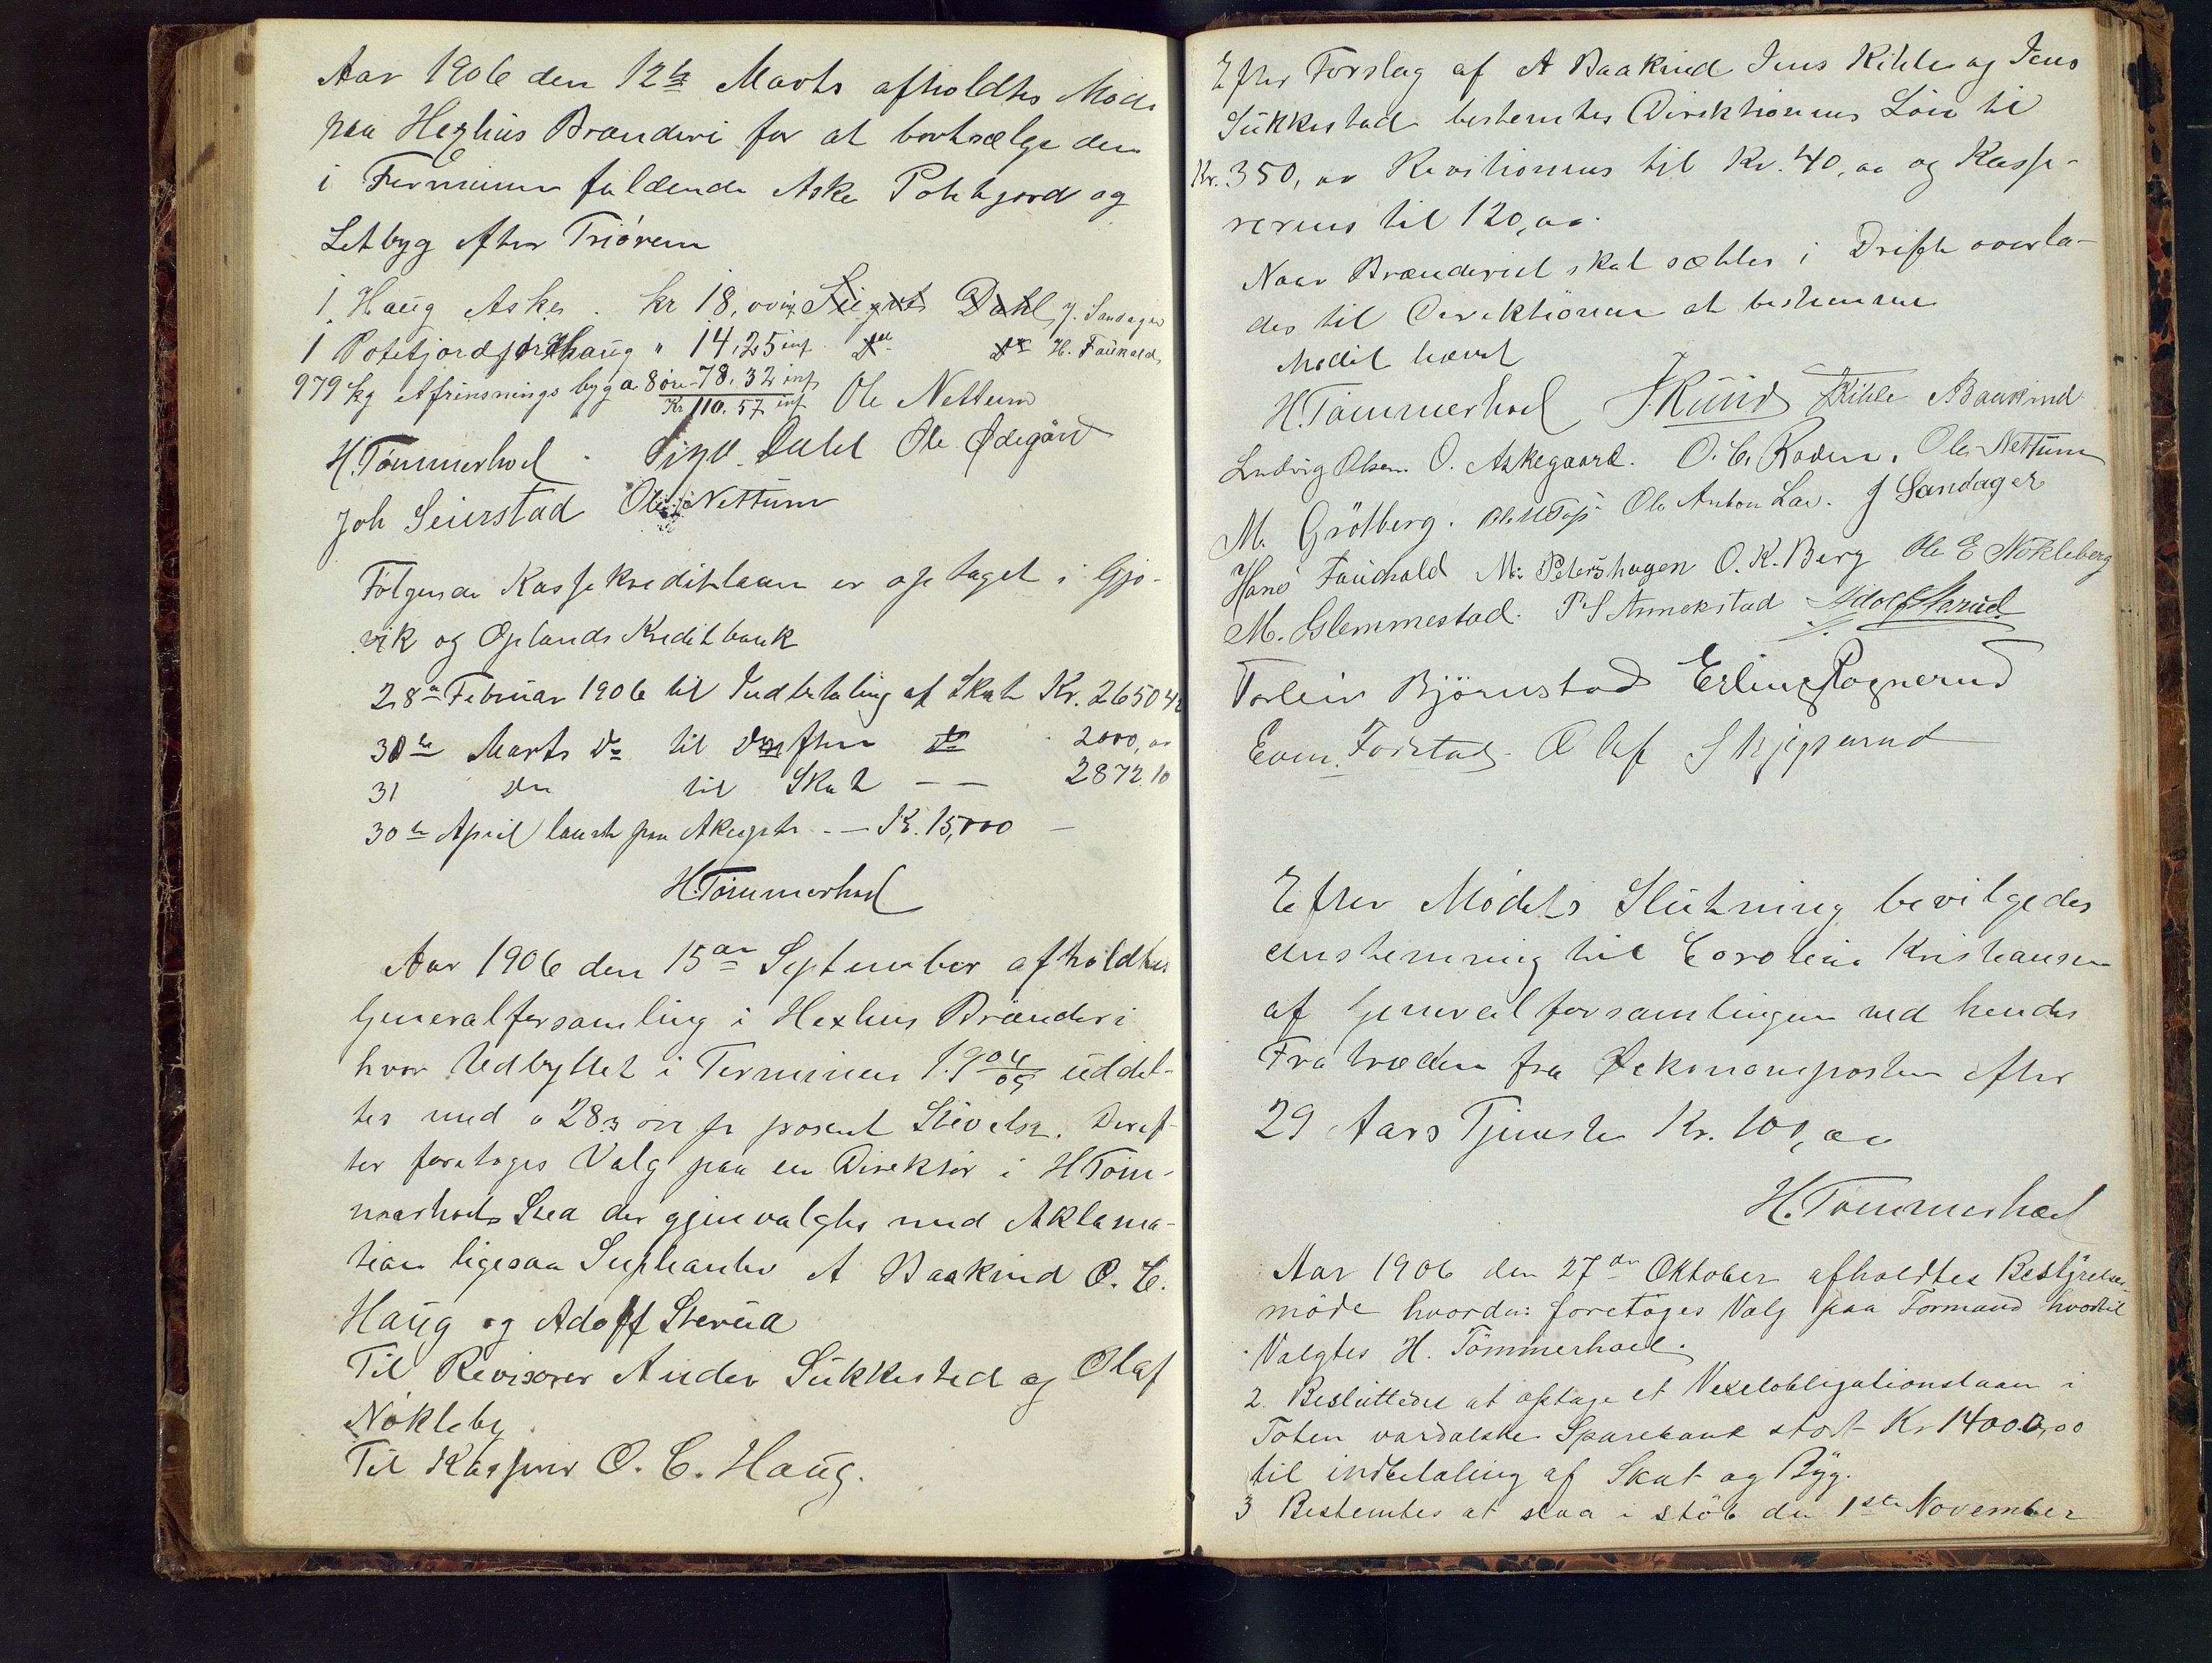 Aar 1906 den 12te Marts afholdtes Möde
paa Hexhus Brænderi for at bortsælge den
i Terminen faldende Aske Potetjord og
Letbyg efter Triören
1 Haug Aske . kr 18,00 inf. Sigvt Dahl J. Sandager
1 Potetjord Haug " 14,25 inf do do H. Faukald
979 kg Afrinsningsbyg a 8 öre - 78.32 inf Ole Nettum
Kr 110.57 inf
H. Tömmerhoel Sigv. Dahl Ole Ødegård
Joh Seierstad Ole Nettum
Fölgende Kassekreditlaan er optaget i Gjö-
vik og Oplands Kreditbank
28de Februar 1906 til Indbetaling af Skat Kr. 2650 42
30te Marts do til Driften do 2000,00
31 do til Skat — — 2872.10
30te April laant paa Aksept — Kr. 15,000 —
H. Tömmerhoel
Aar 1906 den 15de September afholdtes
Generalforsamling i Hexhus Brænderi
hvor Udbyttet i Terminen 1904/05 uddel-
tes med a 28,3 öre pr prosent Stivelse. Deref-
ter foretoges Valg paa en Direktör i H Töm-
merhoels Sted der gjenvalgtes med Aklama-
tion ligesaa Supleanter A Baakind O. C.
Haug og Adolf Sterud
Til Revisorer Ander Sukkestad og Olaf
Nökleby
Til Kasserer O. C. Haug.
Efter Forslag af A Baakind Jens Kihle og Jens
Sukkestad bestemtes Direktionens Lön til
Kr. 350,00 Revitionens til Kr. 40,00 og Kasse-
rerens til 120,00.
Naar Brænderiet skal sættes i Drift overla-
des til Direktionen at bestemme
Mödet hævet
H. Tömmerhoel J. Rúnd J Kihle A Baakind
Ludvig Olsen O. Askegaard. O. C. Roden. Ole Nettum
M. Grötberg. Ole Anton Lav. J Sandager
Hans Faukald M. Petershagen O. K. Berg Ole E Nökleberg
M. Glemmestad. P S Annekstad Adolf Sterud
Torleiv Björnstad Erling Rognerud
Even Forstad Olaf Skjeperud
Efter Mödets Slutning bevilgedes
enstemmig til Caroline Kristiansen
af Generalforsamlingen ved hendes
Fratræden fra Økonomeposten efter
29 Aars Tjeneste Kr. 100,00
H. Tömmerhoel
Aar 1906 den 27de Oktober afholdtes Bestyrelses-
möde hvorda: foretoges Valg paa Formand hvortil
Valgtes H. Tömmerhoel.
2. Besluttedes at optage et Vexelobligationslaan i
Toten vardalske Sparebank stort Kr 14000,00
til indbetaling af Skat og Byg.
3 Bestemtes at slaa i stöb den 1ste November